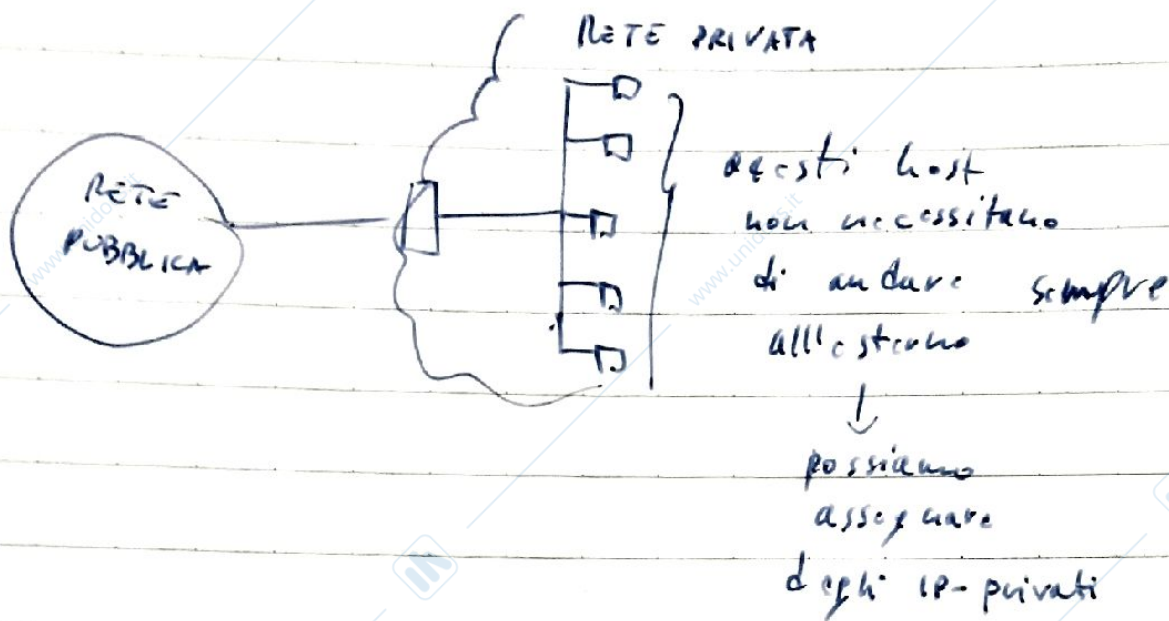 RETE PRIVATA
RETE
PUBBLICA
questi host
non necessitano
di andare sempre
all'esterno
↓
possiamo
assegnare
degli IP-privati
www.unidocs.it